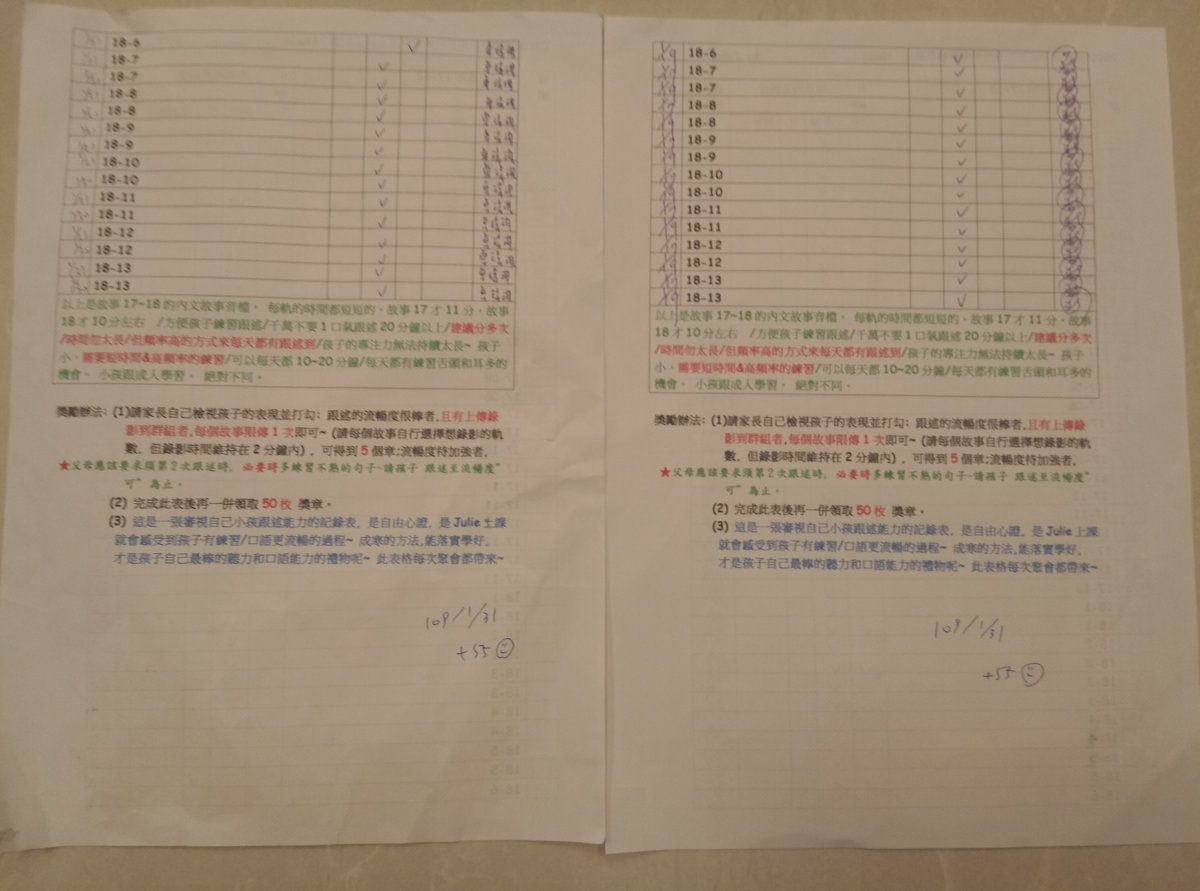 18-6
18-7
18-7
18-8
18-8
18-9
18-9
18-10
18-10
18-11
18-11
18-12
18-12
18-13
18-13
以上是故事 17~18 的內文故事音檔。 每軌的時間都短短的、故事 17 才 11 分、故事
18 才 10 分左右 /方便孩子練習跟述/千萬不要 1 口氣跟述 20 分鐘以上/建議分多次
/時間勿太長/但頻率高的方式來每天都有跟述到/孩子的專注力無法持續太長~ 孩子
小，需要短時間&高頻率的練習/可以每天都 10~20 分鐘/每天都有練習舌頭和耳多的
機會。 小孩跟成人學習。 絕對不同。
獎勵辦法: (1)請家長自己檢視孩子的表現並打勾: 跟述的流暢度很棒者,且有上傳錄
影到群組者,每個故事限傳 1 次即可~ (請每個故事自行選擇想錄影的軌
數，但錄影時間維持在 2 分鐘內)，可得到 5 個章;流暢度待加強者,
★父母應該要求須第 2 次跟述時， 必要時多練習不熟的句子~請孩子 跟述至流暢度"
可" 為止。
(2) 完成此表後再一併領取 50 枚 獎章。
(3) 這是一張審視自己小孩跟述能力的記錄表，是自由心證，是 Julie 上課
就會感受到孩子有練習/口語更流暢的過程~ 成寒的方法,能落實學好,
才是孩子自己最棒的聽力和口語能力的禮物呢~ 此表格每次聚會都帶來~
109/1/31
+55
18-6
18-7
18-7
18-8
18-8
18-9
18-9
18-10
18-10
18-11
18-11
18-12
18-12
18-13
18-13
以上是故事 17~18 的內文故事音檔。 每軌的時間都短短的、故事 17 才 11 分、故事
18 才 10 分左右 /方便孩子練習跟述/千萬不要 1 口氣跟述 20 分鐘以上/建議分多次
/時間勿太長/但頻率高的方式來每天都有跟述到/孩子的專注力無法持續太長~ 孩子
小，需要短時間&高頻率的練習/可以每天都 10~20 分鐘/每天都有練習舌頭和耳多的
機會。 小孩跟成人學習。 絕對不同。
獎勵辦法: (1)請家長自己檢視孩子的表現並打勾: 跟述的流暢度很棒者,且有上傳錄
影到群組者,每個故事限傳 1 次即可~ (請每個故事自行選擇想錄影的軌
數，但錄影時間維持在 2 分鐘內)，可得到 5 個章;流暢度待加強者,
★父母應該要求須第 2 次跟述時， 必要時多練習不熟的句子~請孩子 跟述至流暢度"
可" 為止。
(2) 完成此表後再一併領取 50 枚 獎章。
(3) 這是一張審視自己小孩跟述能力的記錄表，是自由心證，是 Julie 上課
就會感受到孩子有練習/口語更流暢的過程~ 成寒的方法,能落實學好,
才是孩子自己最棒的聽力和口語能力的禮物呢~ 此表格每次聚會都帶來~
109/1/31
+55